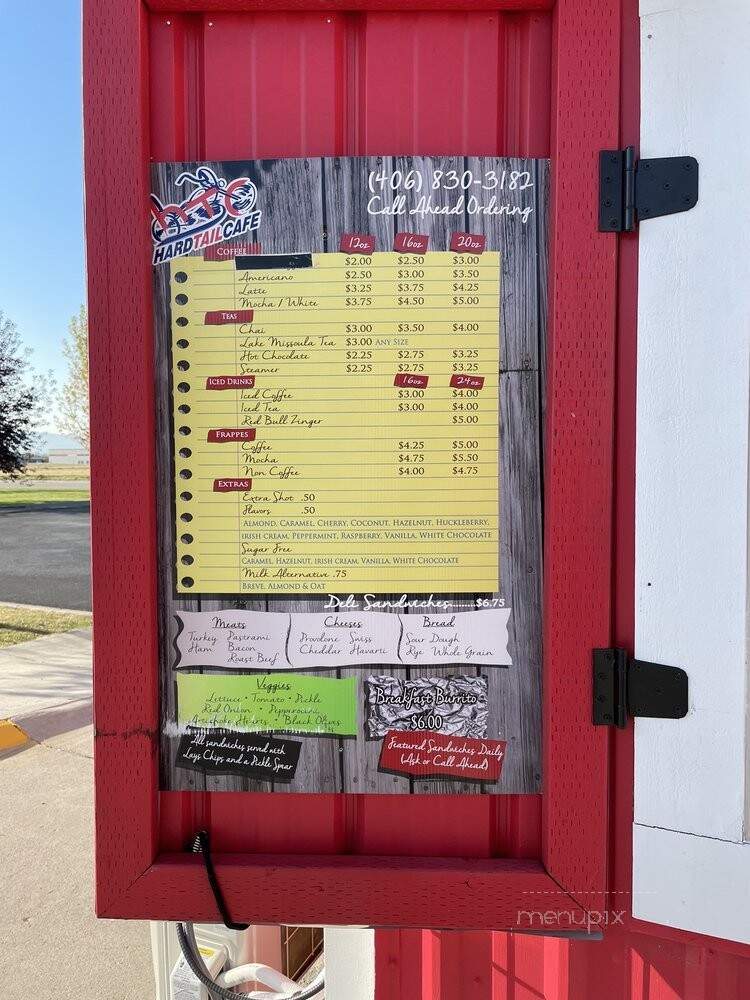 (406) 830-3182
Call Ahead Ordering
HTC
HARDTAILCAFE
12oz 16oz 20oz
COFFEE
$2.00 $2.50 $3.00
Americano $2.50 $3.00 $3.50
Latte $3.25 $3.75 $4.25
Mocha / White $3.75 $4.50 $5.00
TEAS
Chai $3.00 $3.50 $4.00
Lake Missoula Tea $3.00 ANY SIZE
Hot Chocolate $2.25 $2.75 $3.25
Steamer $2.25 $2.75 $3.25
ICED DRINKS 16oz 24oz
Iced Coffee $3.00 $4.00
Iced Tea $3.00 $4.00
Red Bull Zinger $5.00
FRAPPES
Coffee $4.25 $5.00
Mocha $4.75 $5.50
Non Coffee $4.00 $4.75
EXTRAS
Extra Shot .50
Flavors .50
ALMOND, CARAMEL, CHERRY, COCONUT, HAZELNUT, HUCKLEBERRY,
IRISH CREAM, PEPPERMINT, RASPBERRY, VANILLA, WHITE CHOCOLATE
Sugar Free
CARAMEL, HAZELNUT, IRISH CREAM, VANILLA, WHITE CHOCOLATE
Milk Alternative .75
BREVE, ALMOND & OAT
Deli Sandwiches.........$6.75
Meats Cheeses Bread
Turkey Pastrami Provolone Swiss Sour Dough
Ham Bacon Cheddar Havarti Rye Whole Grain
Roast Beef
Veggies
Lettuce • Tomato • Pickle
Red Onion • Pepperocini
Artichoke Hearts • Black Olives
Breakfast Burrito
$6.00
All sandwiches served with
Lays Chips and a Pickle Spear
Featured Sandwiches Daily
(Ask or Call Ahead)
menupix